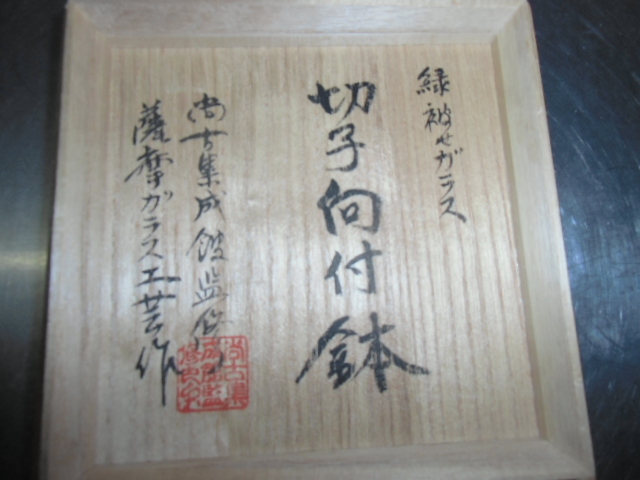 緑被せガラス
切子向付鉢
尚古集成館監修
薩摩ガラス工芸作